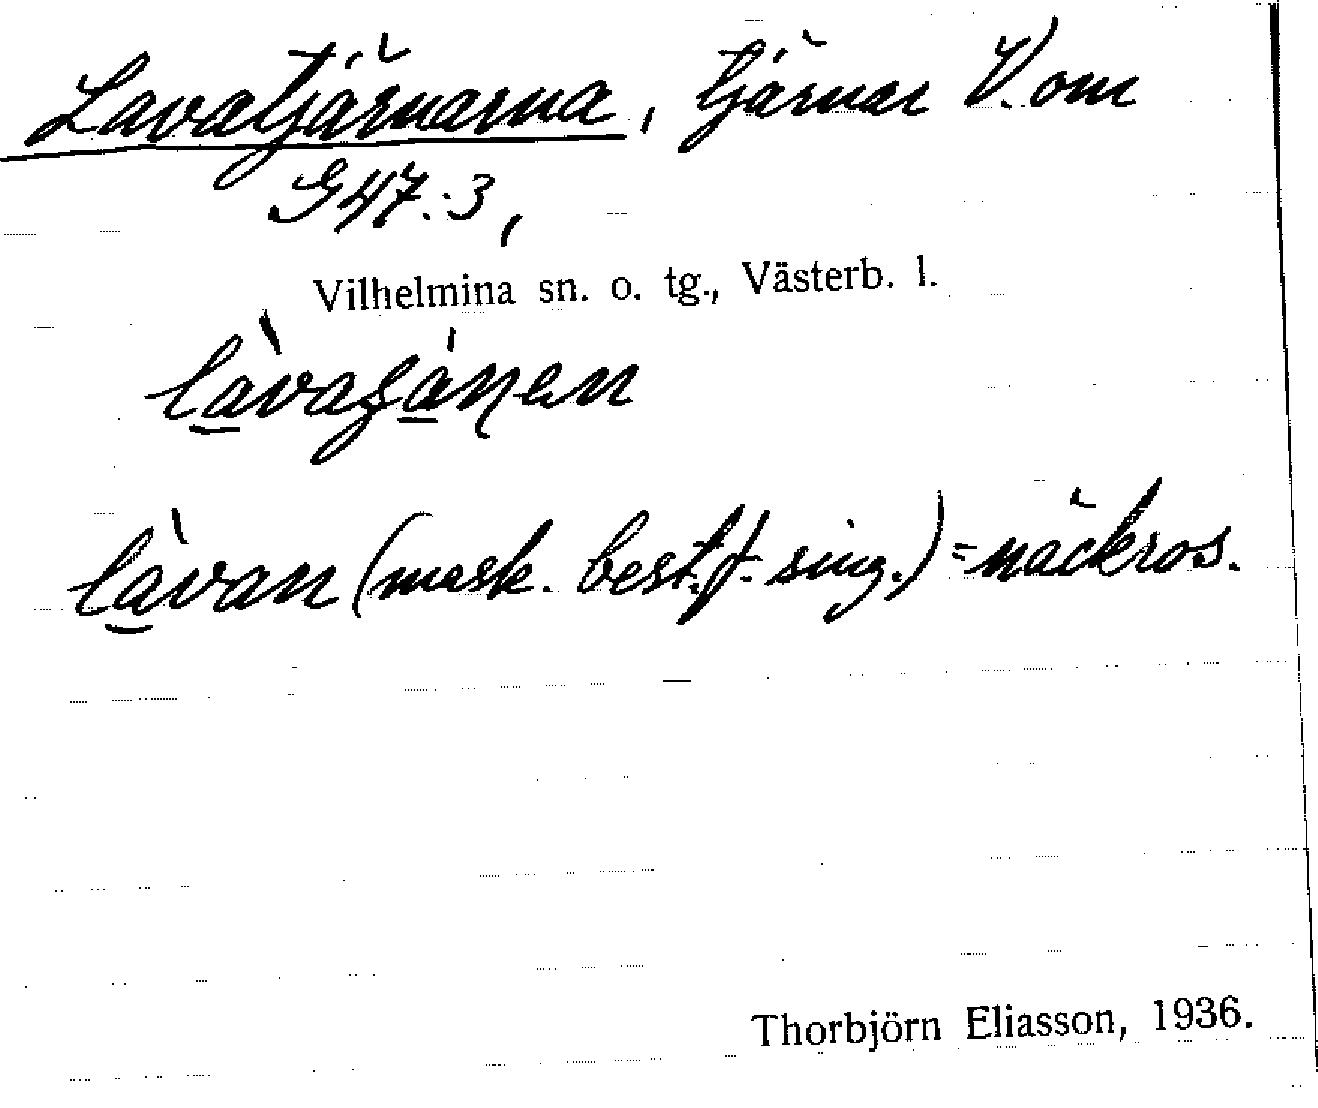 Lavatjärnarna, tjärnar V. om
G47:3,
Vilhelmina sn. o. tg., Västerb. l.
làvan (mask. best. f. sing.) = näckros.
Thorbjörn Eliasson, 1936.